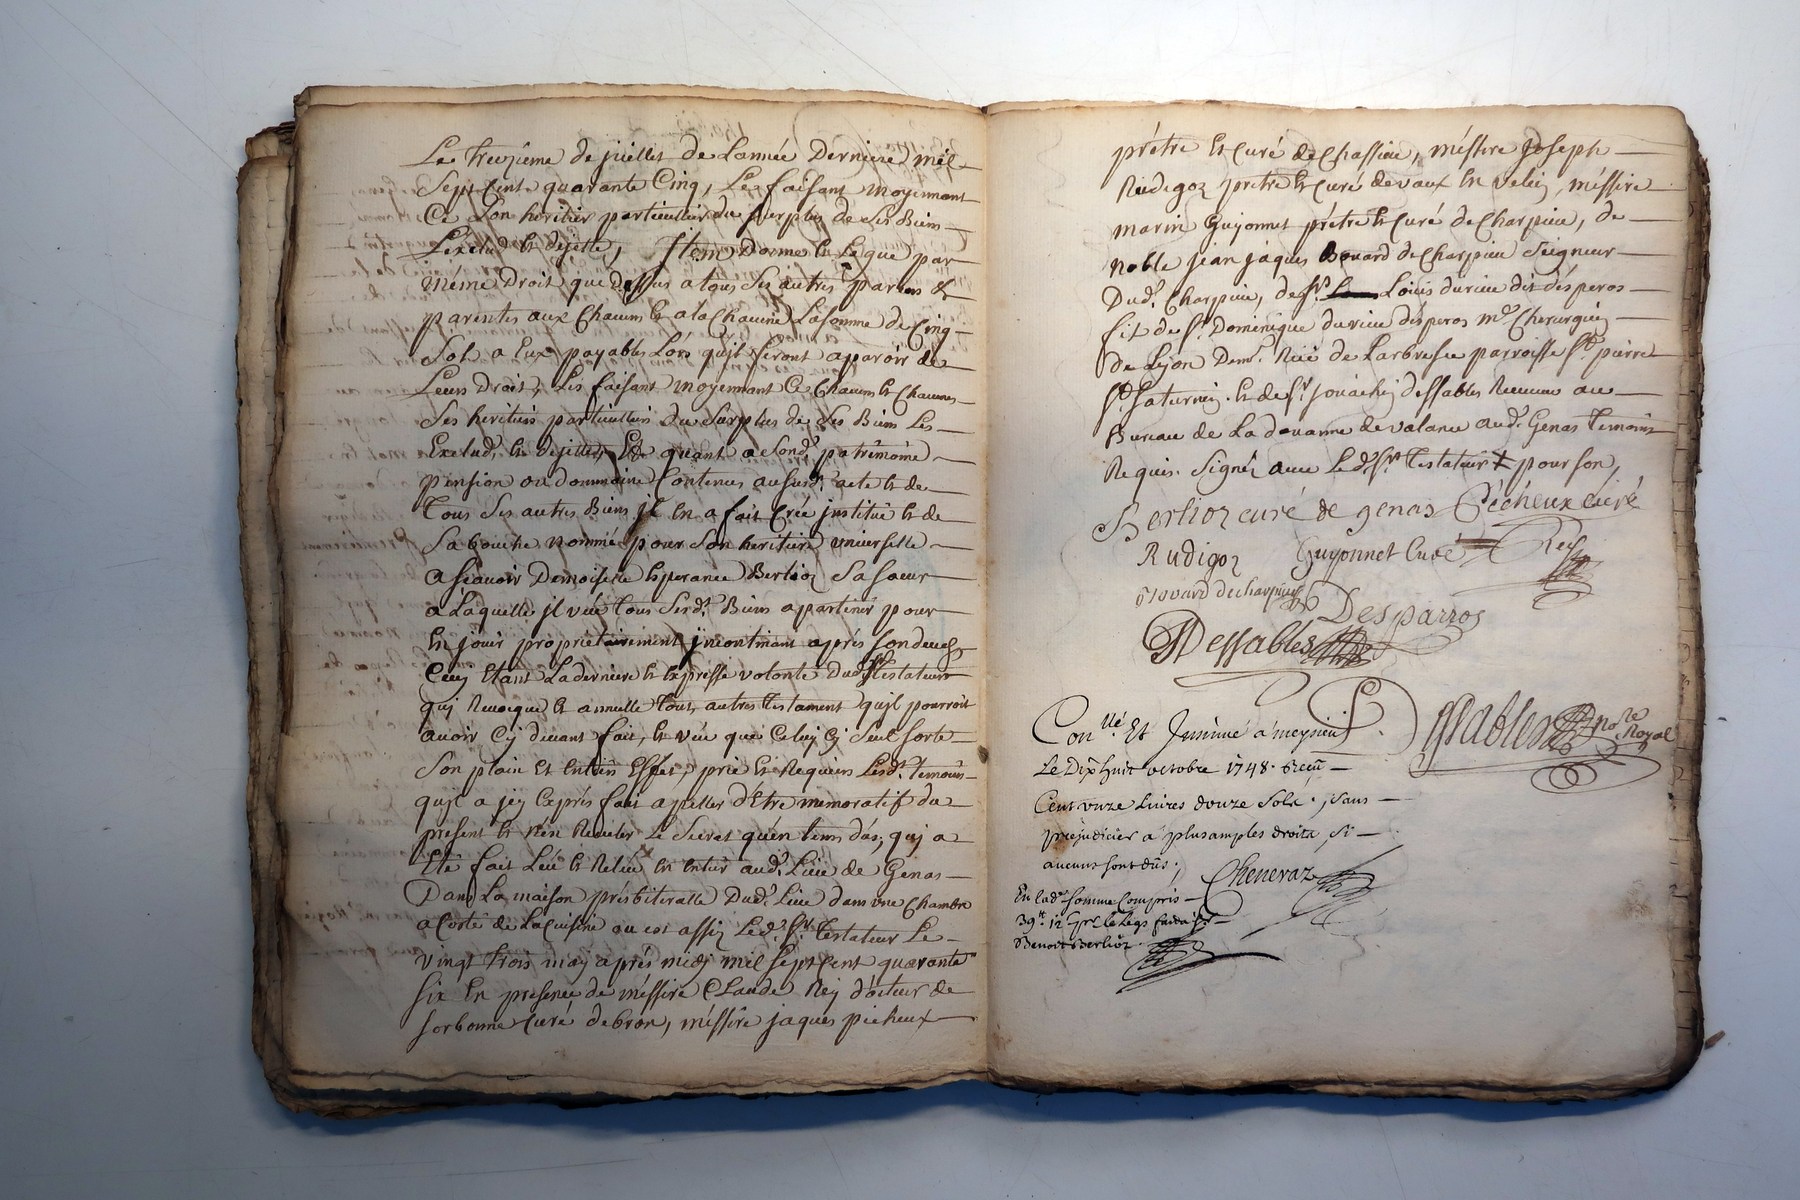 Le treizieme de juillet de Lannée Derniere mil
Sept Cent quarante Cinq, Les faisant moyennant
Ce Son heritier particullier du surplus de Ses Biens
L'exclud et dejette, Item Donne et Legue par
même Droit que Dessus a tous Ses autres parens &
parentes aux Chacuns et a la Chacune La somme de Cinq
Sols a Eux payables Lors quil Seront aparoir de
Leurs Droit, Les faisant moyennant Ce Chacuns et Chacunes
Ses heritiers particulliers Du Surplus de Ses Biens Les
Exclud, et dejette, Et quant a Sond. patrimoine
pension ou dommaine Contenus au susd. acte et de
Tous Ses autres Biens jl en a fait Créé jnstitué et de
Sa bouche nommé pour Son heritiere universelle
a Scavoir Demoiselle Esperance Berlioz Sa Soeur
a Laquelle jl veut tous Sesd. Biens apartenir pour
En jouir proprietairement jncontinant aprés Son decés
Cecy Etant La derniere et Expresse volonté Dud. Sr. Testateur
qui Revoque et annulle tous autres testament quil pourroit
avoir Cy devant fait, et veut que Celuy Cy Seul Sorte
Son plain et entier Effet, prie et Requiers Lesd. temoins
quil a jcy Exprés fait apeller d'Etre memoratif du
present et n'en Reveler Le Secret qu'en tems dus, qui a
Eté fait Leu et Releu en entier aud. Lieu de Genas
Dans La maison présbiteralle Dud. Lieu dans une Chambre
a Coste de La Cuisine ou est assis Led. Sr. Testateur Le
vingt trois may aprés midy mil Sept Cent quarante
Six en presence de méssire Claude Rey docteur de
Sorbonne Curé de bron, méssire jaques pécheux
prétre et curé de Chassieu, méssire joseph
Rudigoz prétre et Curé de vaux en velin, méssire
marin Guyonnet prétre et Curé de Charpieu, de
noble jean jaques Bouard de Charpieu Seigneur
Dud. Charpieu, de Sr. Louis durieu dit désperos
fit de Sr. Dominique durieu désperos me. Cherurgien
de Lyon Demt. Rue de Larbresle parroisse St. pierre
St. Saturnin. et de Sr. jouachin dessables Receveur au
Bureau de La douanne de valance aud. Genas temoins
Requis. Signéz avec Led. Sr. Testateur
Berlioz curé de genas Pécheux curé
Rudigoz Guyonnet Curé Rey
Bouard decharpieu Desparros
Dessables
Dessables nore. Royal
Conllé Et Jnsinué a meysieu
Le Dix huit octobre 1748. Reçu
Cent onze Livres douze Sols, sans
prejudicier a plus amples droits, Si
aucuns sont dûs.
Cheneraz
En lad. somme Compris
39tt. 12 s. pr. le Legs fait a
Benoit Berlioz